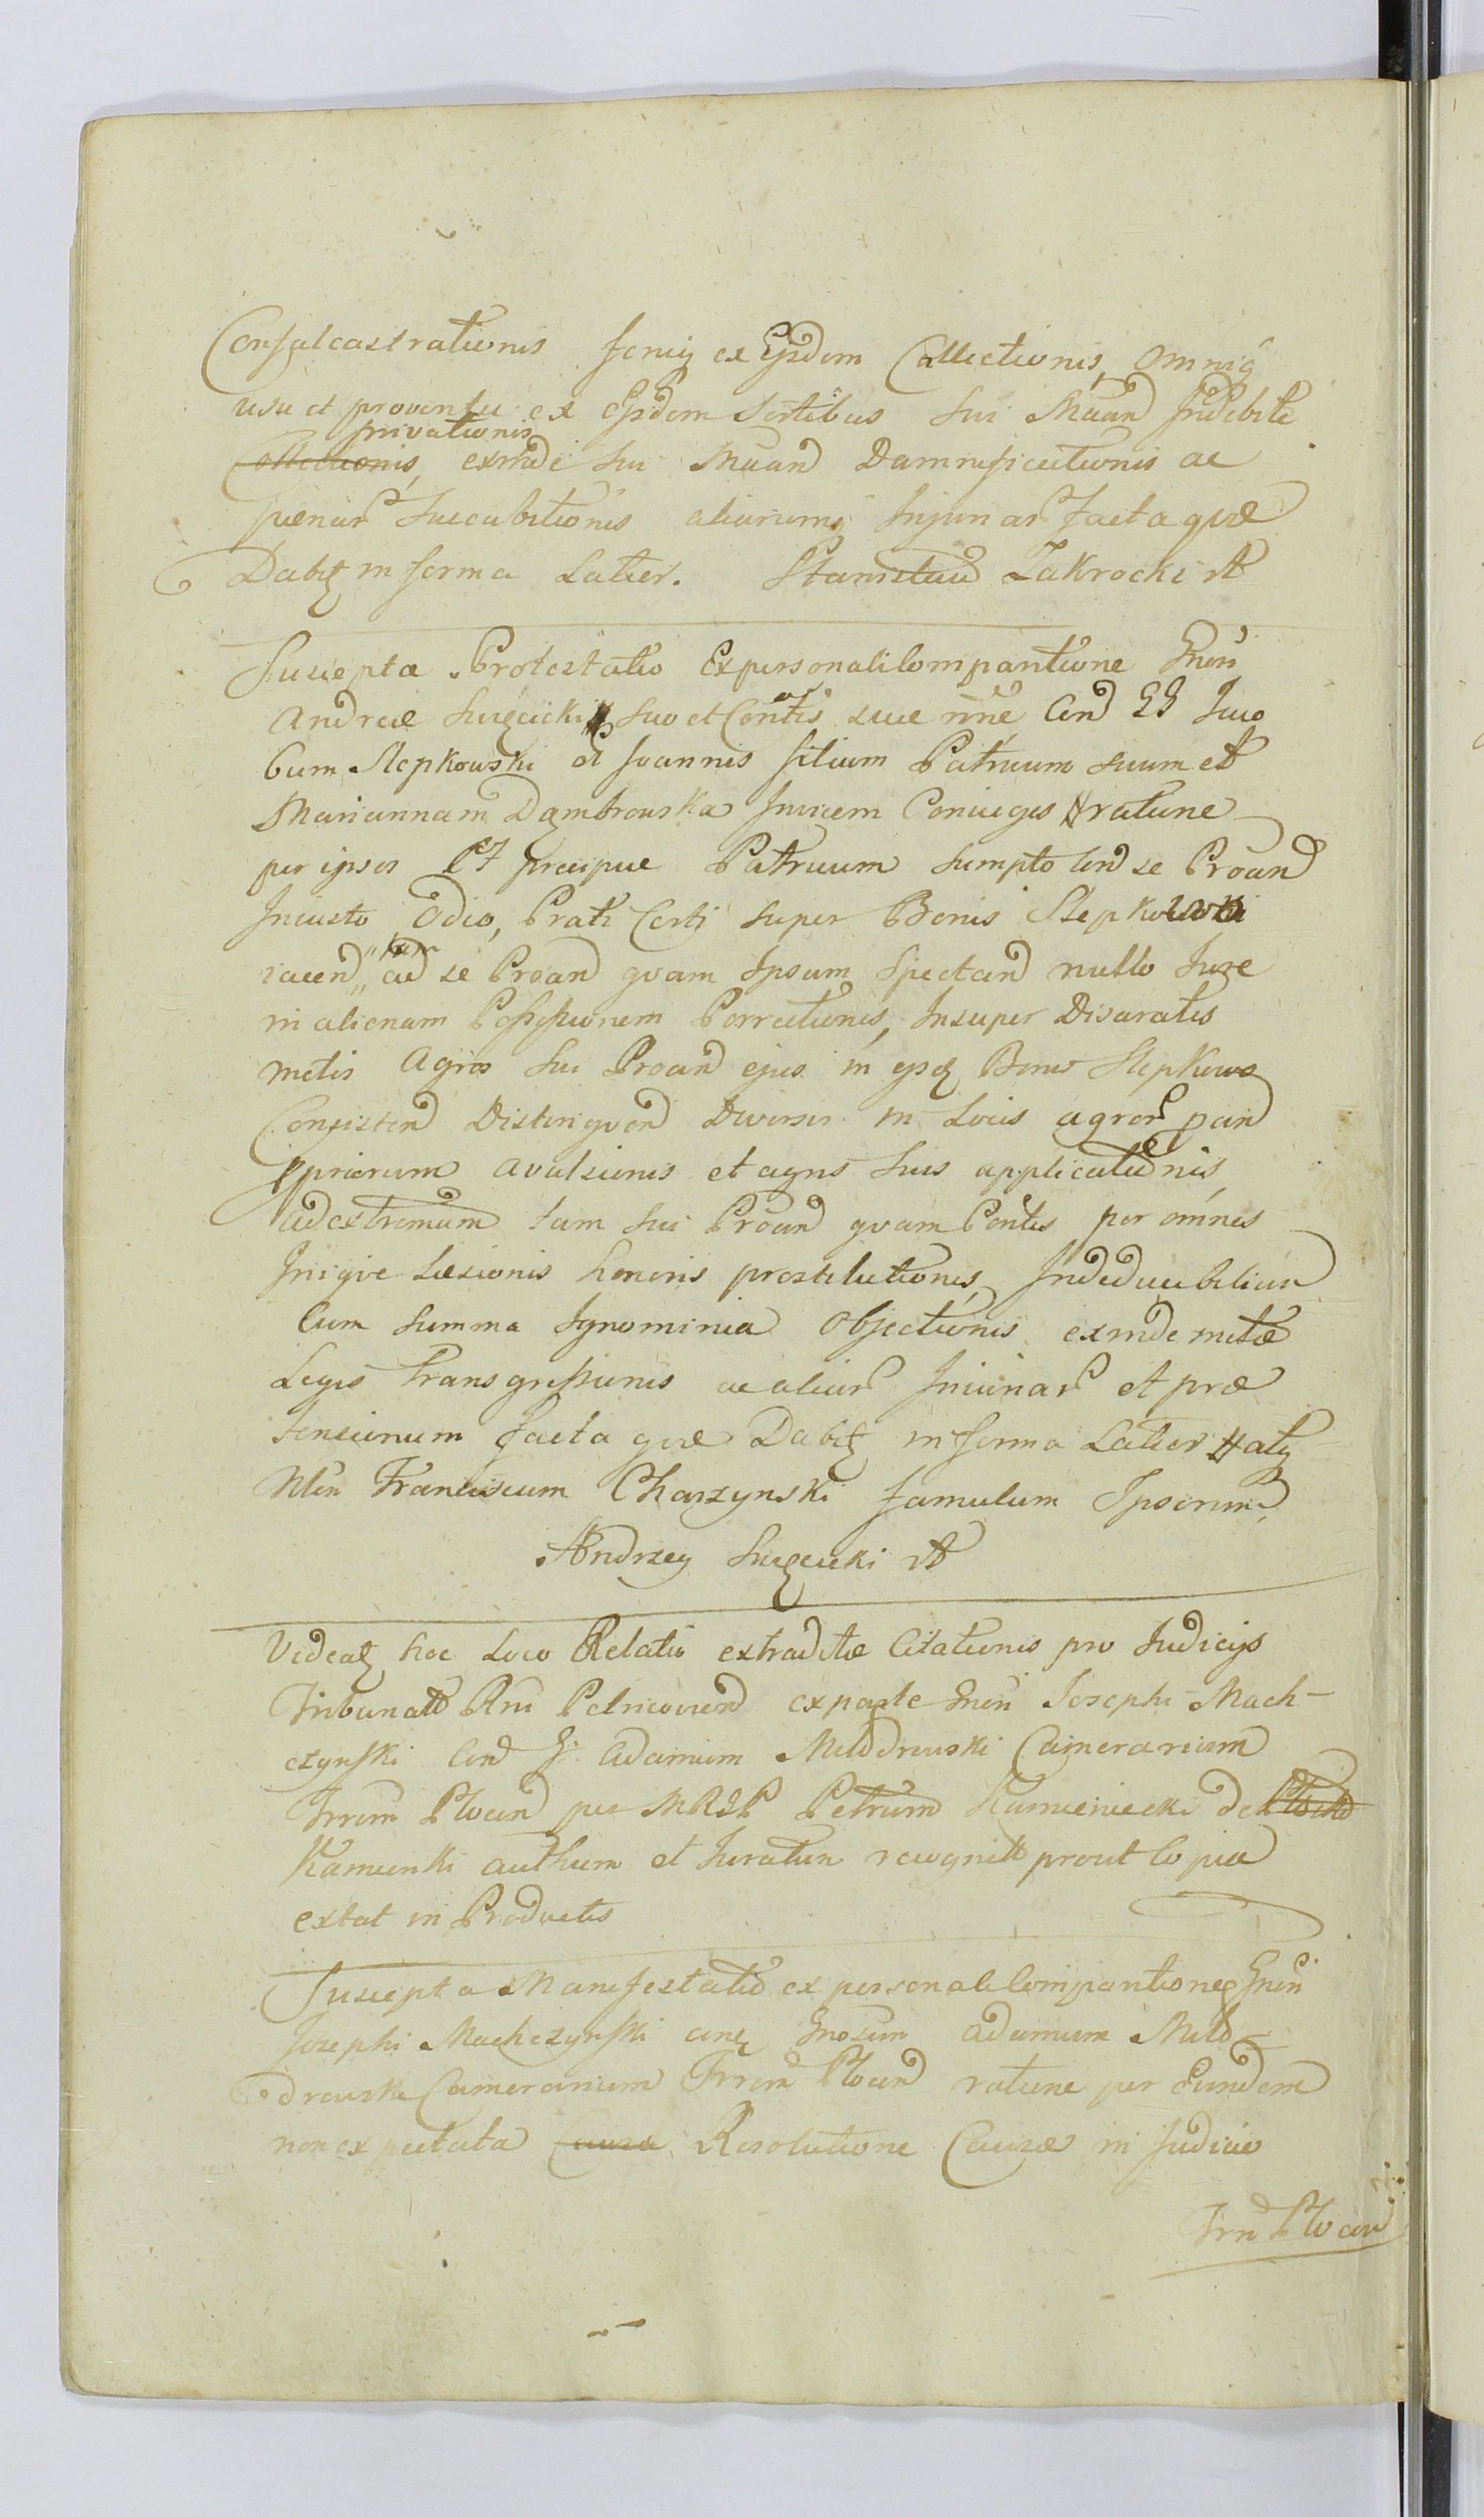 Confalcastrationis fenig ex Ejsdem Collectionis, omnig
usu et proventu ex Ejsdem Sortibus sui Maand Indebite
privationis
Collectionis, exinde sui Maand Damnificationis ac
paenar Succubitionis aliarumq Injuriar facta quæ
Dabit in forma Latior. Stanislaus Zakrocki
Suscepta Protestatio Ex personali Compantione Gnosi
Andreæ suo et Contis suæ nne Con GG Jaco
bum Slepkowski ol Joannis filium Patruum suum et
Mariannam Dąmbrowska Invicem Coniuges ratione
per ipsos Et præcipue Patruum sumpto con se Proand
Iniusto Odio, Prati Certi super Bonis Slepkowo
iacend, tam ad se Proand qvam Ipsum Spectand nullo Jure
in alienam Possessionem Porrectionis, Insuper Disaratis
metis Agros sui Proand ejus in ijsd Bonis Slepkowo
Consisten Distingven Diversis in Locis agror pand
ppriorum avulsionis et agris suis applicationis,
ad extremum tam sui Proand qvam Contis per omnes
Iniqve Læsionis honoris prostitutionis, Indeducibilium
Cum summa Ignominia Objectionis exinde metæ
Legis transgressionis ac aliar Iniuriar et præ
tensionum facta quæ Dabit in forma Latior
Franciscum Charzynski famulum Ipsorum
Andrzey
Videat hoc Loco Relatio extraditæ Citationis pro Judicijs
Tribunat Rni Petricovien ex parte Gnosi Josephi Mach-
czynski Con G. Adamum Modrowski Camerarium
Trrem Plocen per MRDP Petrum Kamieniecki de Plocko
Kamienki authum et Juratum recognit prout Copia
extat in Productis
Suscepta Manifestatio ex personali Compantione Gnosi
Josephi Machczynski Gnosum Adamum Mło
drowski Camerarium Trrem Plocen ratione per Eundem
non expectata Causa Resolutione Causæ in Judicio
Trri Plocen